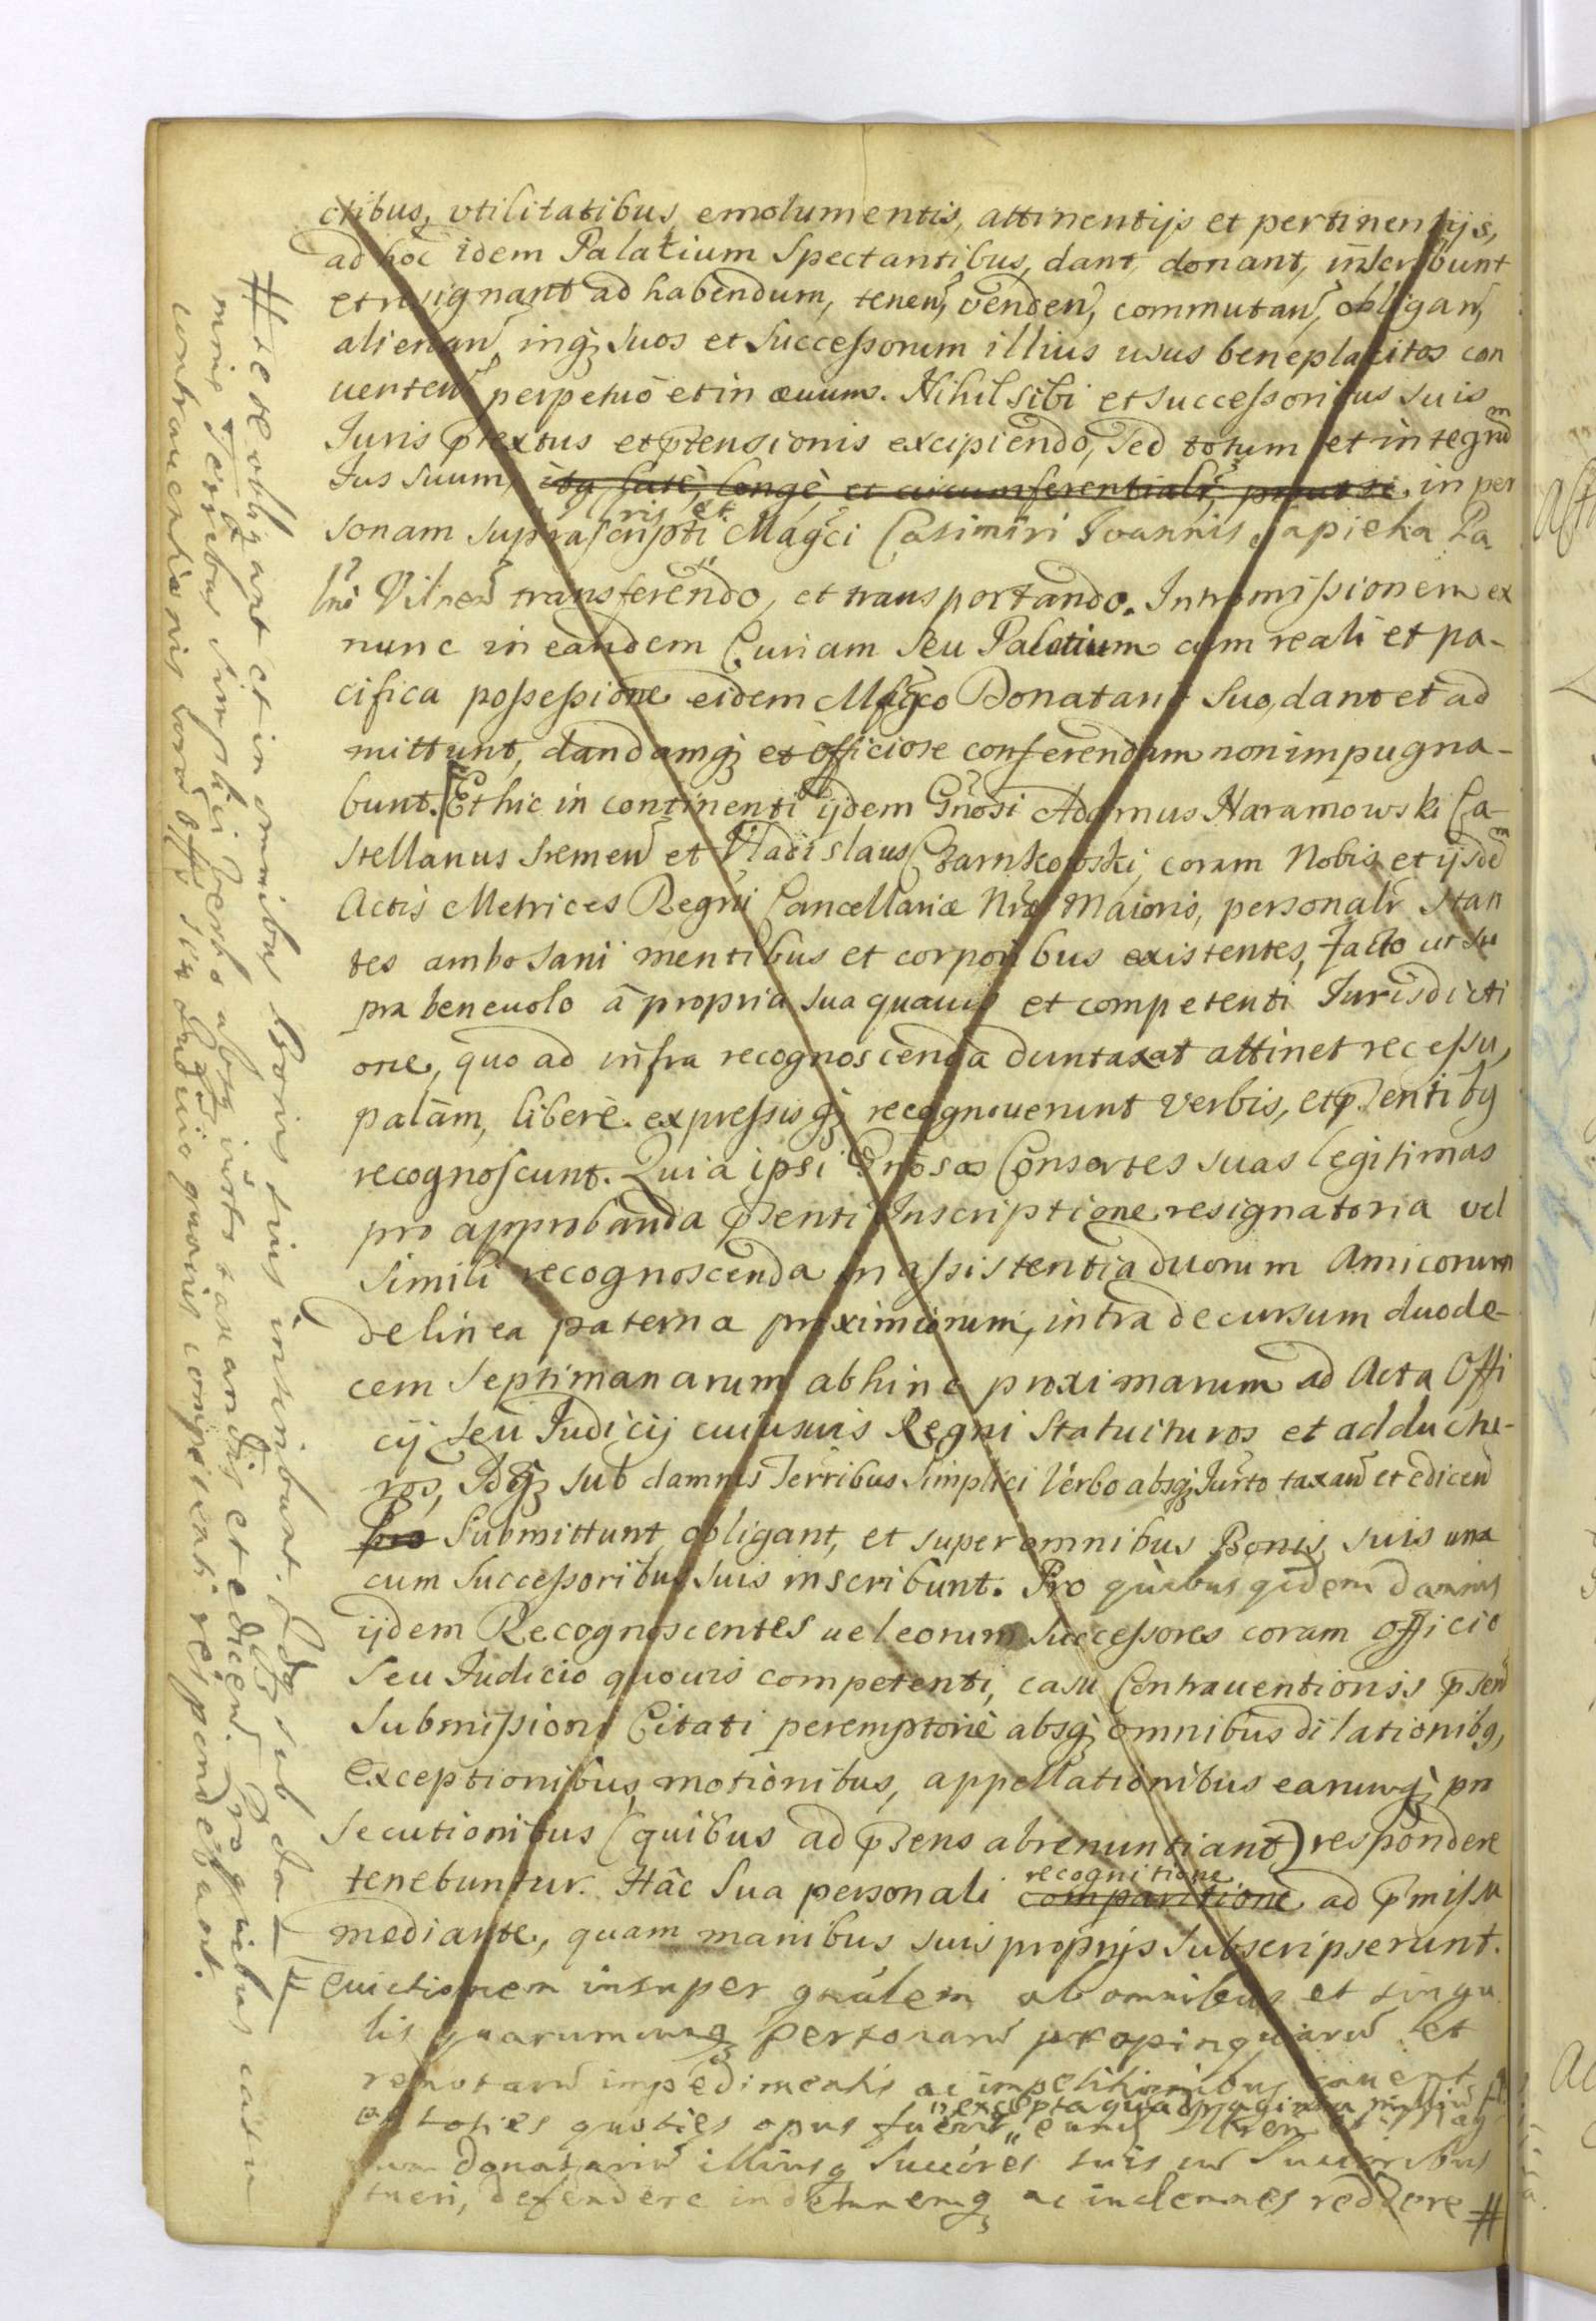 ctibus, vtilitatibus emolumentis, attinentijs et pertinentijs,
ad hoc idem Palatium Spectantibus, dant, donant, inscribunt
et resignant ad habendum, tenen, venden, commutan, obligan,
alienan, inq; suos et Successorum illius usus beneplacitos con
uerten perpetuò et in æuum. Nihil sibi et successoribus suis
Iuris prextus et prtensionis excipiendo, sed totum et integrum
Ius suum, ita latè, longè, et circumferentialr, prout se in per
sonam suprascripti Illris et Magci Casimiri Ioannis Sapieha Pa
lni Vilnen transferendo, et transportando. Intromissionem ex
nunc in eandem Curiam seu Palatium cum reali et pa-
cifica possessione eidem Mgco Donatario suo, dant et ad
mittunt, dandamq; et officiose conferendam non impugna-
bunt. Et hic in continenti ijdem Gnosi Adamus Naramowski Ca-
stellanus Sremen et Vladislaus Czarnkowski, coram Nobis et ijsdem
Actis Metrices Regni Cancellariæ Nræ Maioris, personalr stan
tes ambo sani mentibus et corporibus existentes, facto ut su
pra beneuolo à propria sua quauis et competenti Iurisdicti
one, quo ad infra recognoscenda duntaxat attinet recessu,
palàm, liberè expressisq; recognouerunt verbis, et prsentibg
recognoscunt. Quia ipsi Gnosas Consortes suas legitimas
pro approbanda prsenti Inscriptione resignatoria vel
simili recognoscenda in assistentia duorum Amicorum
de linea paterna proximiorum, intra decursum duode-
cem Septimanarum abhinc proximarum ad Acta Offi
cij seu Iudicij cuiusuis Regni Statuituros et adductu-
ros, Idq; sub damnis Terribus simplici Verbo absq; Iurto taxan et edicen
pro Submittunt, obligant, et super omnibus Bonis suis una
cum Successoribus suis inscribunt. Pro quibus qidem damnis
ijdem Recognoscentes uel eorum Successores coram officio
seu Iudicio quouis competenti, casu Contrauentionis prsen
Submissioni Citati peremptoriè absq; omnibus dilationibg,
exceptionibus, motionibus, appellationibus earumq; pro
secutionibus (quibus ad prsens abrenuntiant) respondere
tenebuntur. Hâc Sua personali comparitione recognitione ad prmissa
mediante, quam manibus suis proprijs Subscripserunt.
Euictionem insuper gnalem ab omnibus et singu
lis quarumuisq; personarum propinquarum et
remotarum impedimentis ac impetitionibus cauent
et toties quoties opus fuerit, excepta quadraginta
donatarium illiusq; Succres suis
tueri, defendere indemnemq; ac indemnes reddere #
# sese obligant et in omnibus Bonis suis inscribunt. Idq; sub da
mnis Terribus simplici verbo absq; iurto taxandis et edicen. Pro quibus casu
contrauentionis coram offo siue Iudicio quouis competenti respondebunt.